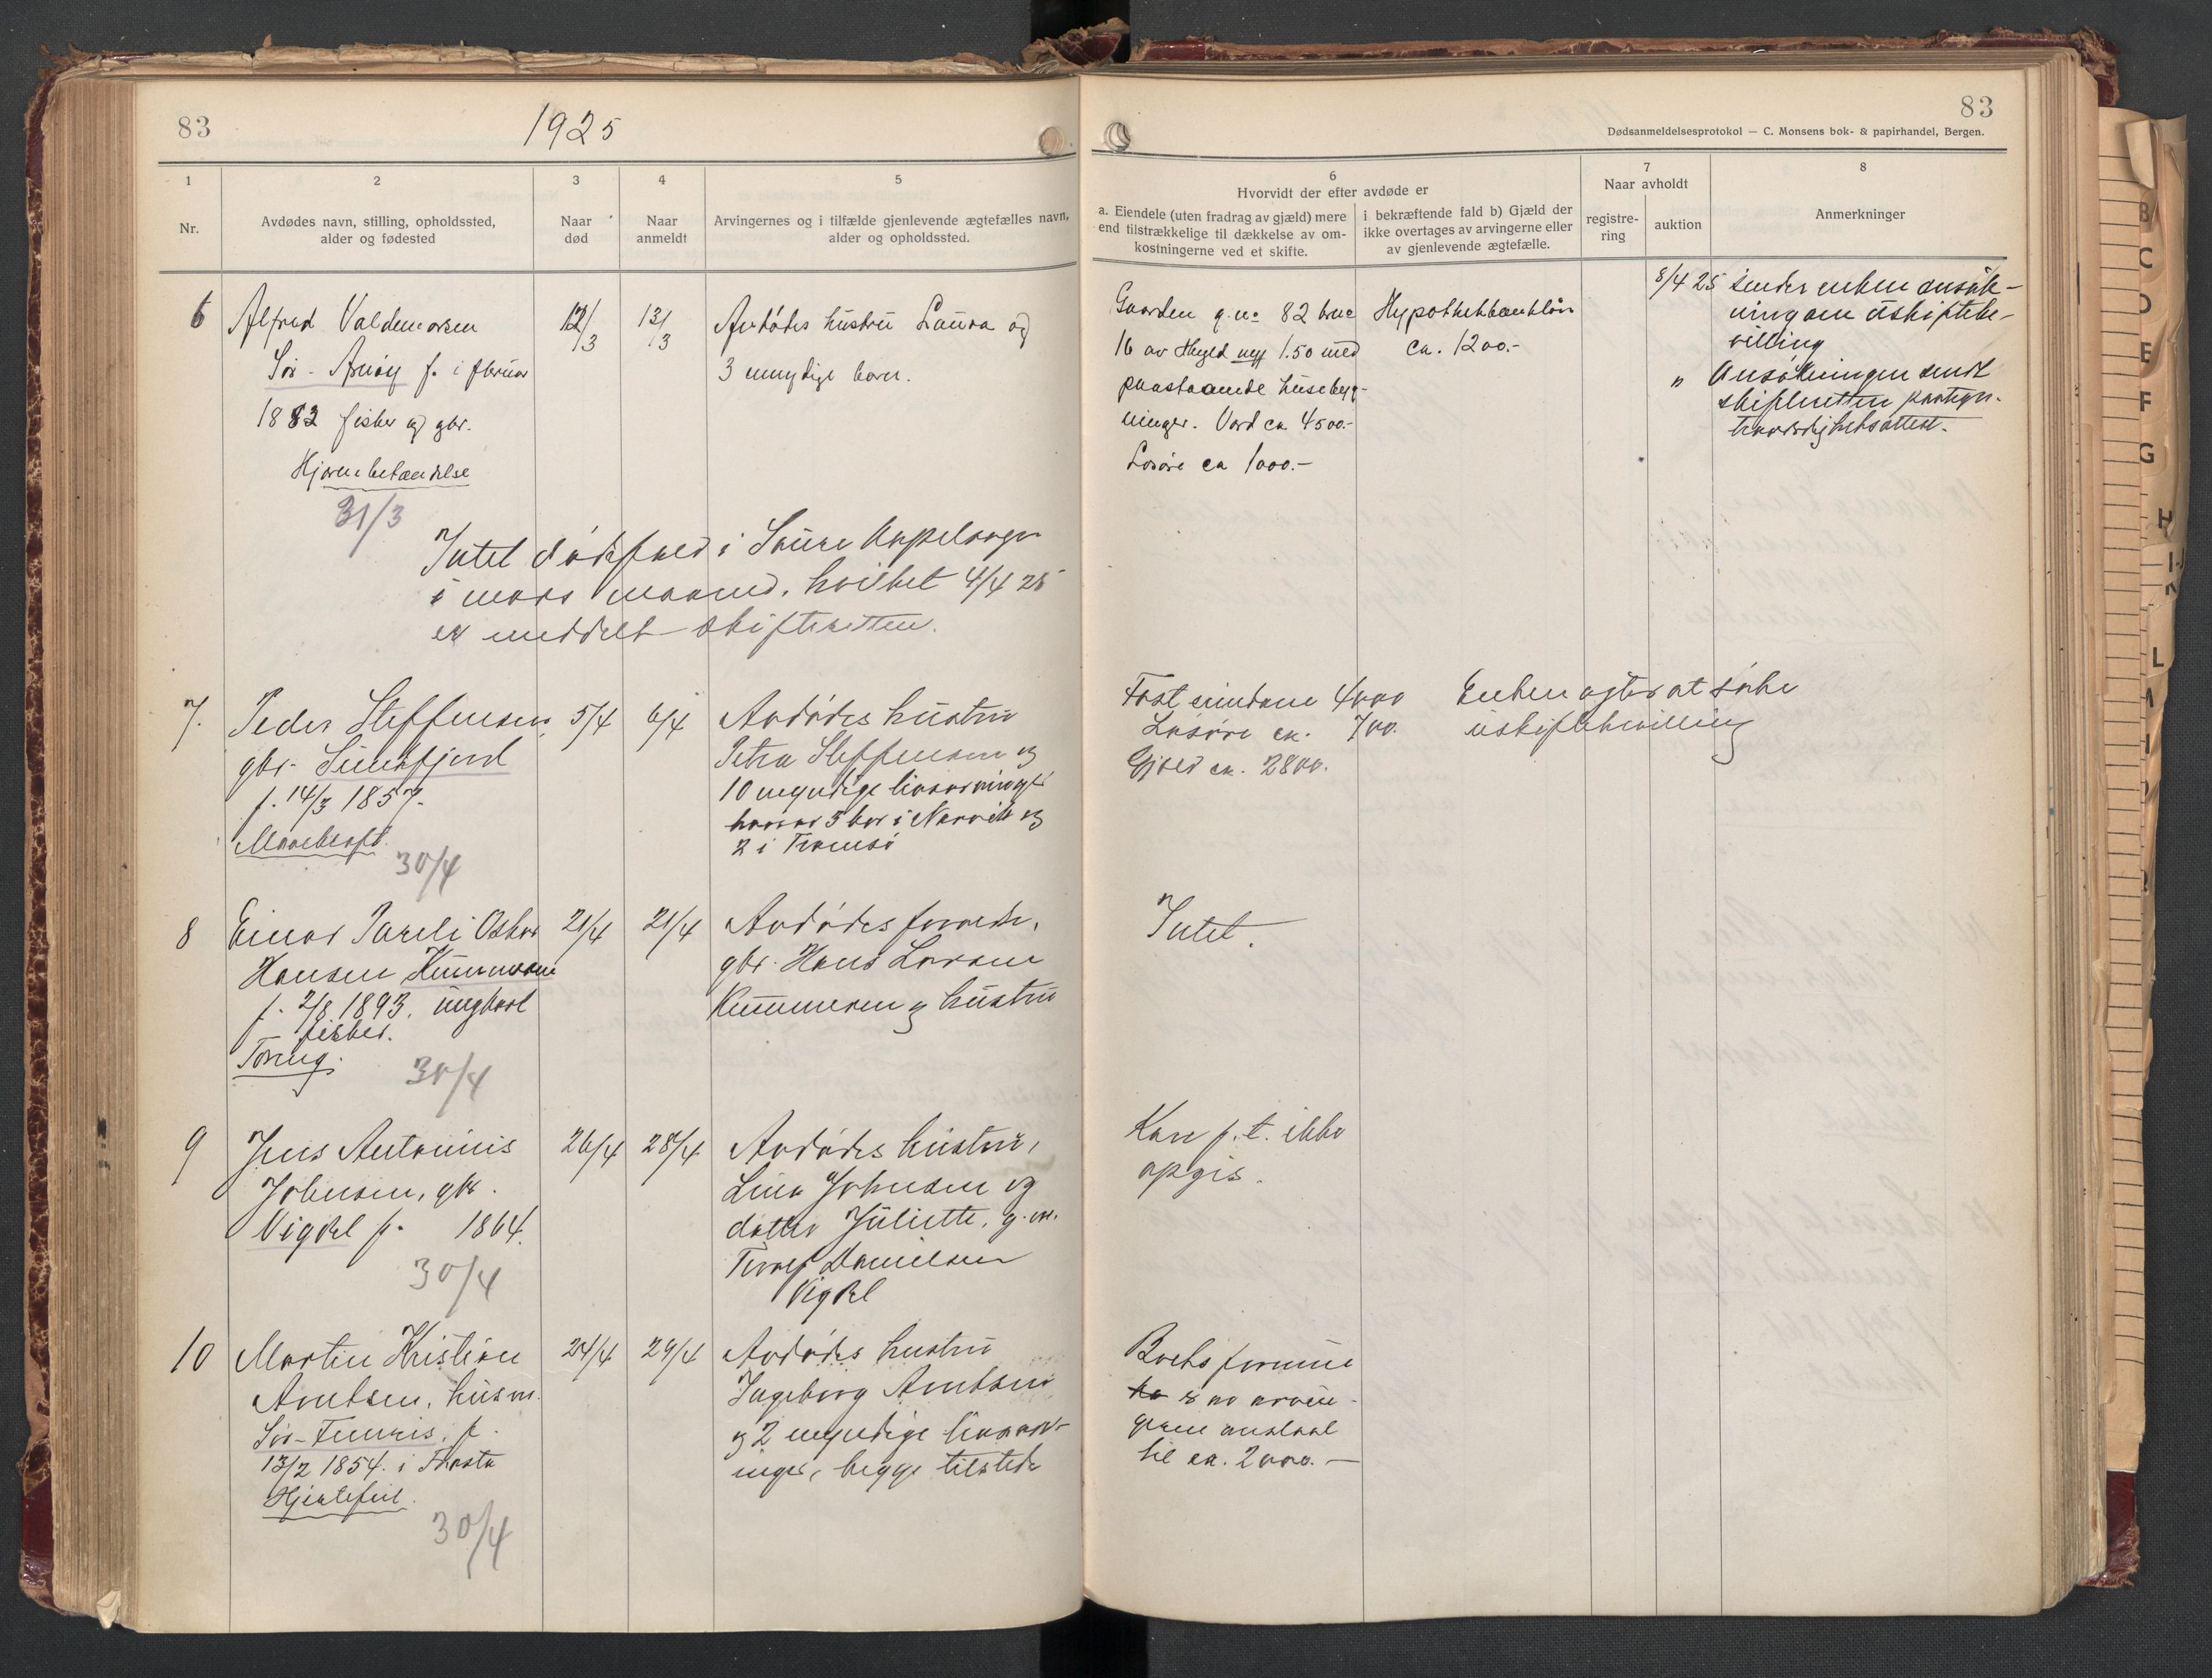 83
1925
83
Dødsanmeldelsesprotokol — C. Monsens bok- & papirhandel, Bergen.
1
2
3
4
5
6
7
8
Nr.
Avdødes navn, stilling, opholdssted,
alder og fødested
Naar
død
Naar
anmeldt
Arvingernes og i tilfælde gjenlevende ægtefælles navn,
alder og opholdssted.
Hvorvidt der efter avdøde er
a. Eiendele (uten fradrag av gjæld) mere
end tilstrækkelige til dækkelse av om-
kostningerne ved et skifte.
i bekræftende fald b) Gjæld der
ikke overtages av arvingerne eller
av gjenlevende ægtefælle.
Naar avholdt
registre-
ring
auktion
Anmerkninger
6
Alfred Valdemarsen
Sør-Arnøy f. i
1882 fisker og gbr.
Hjernebetændelse
31/3
12/3
13/3
Avdødes hustru Laura og
3 umyndige barn.
Gaarden g.no 82 bno
16 av skyld 1.50 med
paastaaende husebyg-
ninger. Værd ca 4500.-
Løsøre ca 1000.-
Hypothekbanklån
ca. 1200.-
8/4 25 sender enken ansøk-
ning om uskiftebe-
villing
" Ansøkningen sendt
skifteretten
Intet dødsfald i
i mars maaned, hvilket 4/4 25
er meddelt skifteretten.
7.
Peder Steffensen,
gbr.
f. 14/3 1857.
Mavekræft.
30/4
5/4
6/4
Avdødes hustru
Petra Steffensen og
10 myndige livsarvinger
hvorav 5 bor i Narvik og
2 i Tromsø
Fast eiendom 4000
Løsøre ca. 700.
Gjæld ca. 2800.
Enken agter at søke
uskiftebevilling
8
Einar Pareli Oskar
Hansen
f. 2/8 1893, ungkarl
fisker.
Tæring.
30/4
21/4
21/4
Avdødes forældre,
gbr. Hans
og hustru
Intet.
9
Jens Antonius
Johnsen, gbr.
f. 1864.
30/4
26/4
28/4
Avdødes hustru,
Lina Johnsen og
datter Juliette, g.m.
Danielsen
Kan p.t. ikke
opgis.
10
Martin Kristian
Arntsen, husm.
Sør-
13/2 1854. i
Hjertefeil.
30/4
24/4
29/4
Avdødes hustru
Ingeborg Arntsen
og 2 myndige livsarv-
inger, begge tilstede
Boets formue
er av arvin-
gerne anslaat
til ca. 2000.—
B
C
D
E
F
G
H
L